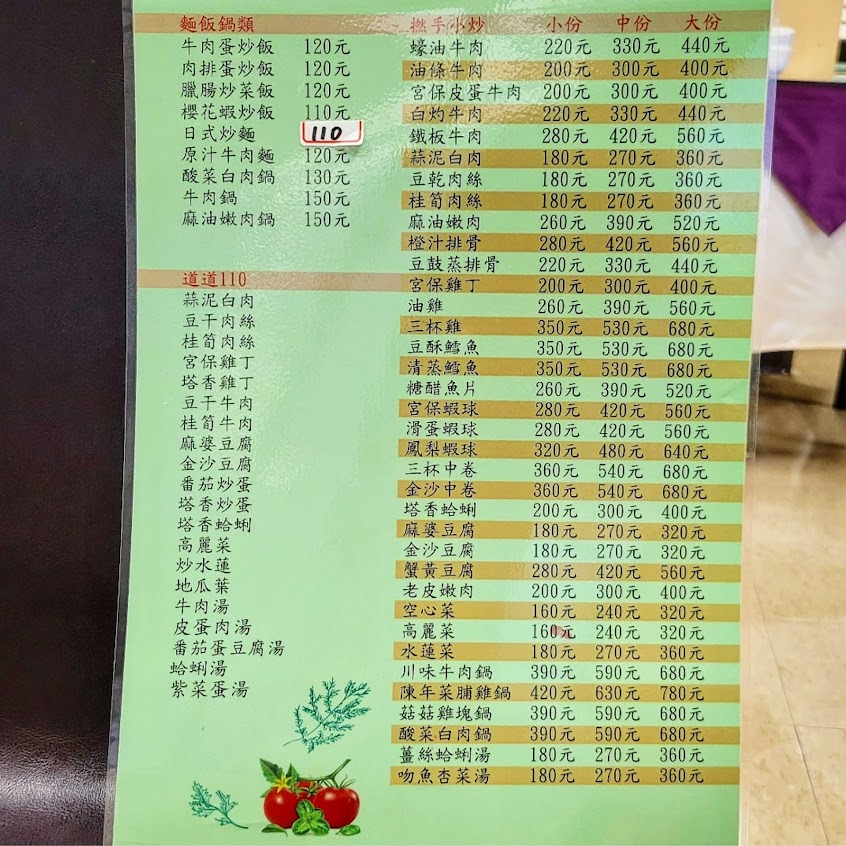 麵飯鍋類
牛肉蛋炒飯 120元
肉排蛋炒飯 120元
臘腸炒菜飯 120元
櫻花蝦炒飯 110元
日式炒麵 110
原汁牛肉麵 120元
酸菜白肉鍋 130元
牛肉鍋 150元
麻油嫩肉鍋 150元
道道110
蒜泥白肉
豆干肉絲
桂筍肉絲
宮保雞丁
塔香雞丁
豆干牛肉
桂筍牛肉
麻婆豆腐
金沙豆腐
番茄炒蛋
塔香炒蛋
塔香蛤蜊
高麗菜
炒水蓮
地瓜葉
牛肉湯
皮蛋肉湯
番茄蛋豆腐湯
蛤蜊湯
紫菜蛋湯
撚手小炒 小份 中份 大份
蠔油牛肉 220元 330元 440元
油條牛肉 200元 300元 400元
宮保皮蛋牛肉 200元 300元 400元
白灼牛肉 220元 330元 440元
鐵板牛肉 280元 420元 560元
蒜泥白肉 180元 270元 360元
豆乾肉絲 180元 270元 360元
桂筍肉絲 180元 270元 360元
麻油嫩肉 260元 390元 520元
橙汁排骨 280元 420元 560元
豆鼓蒸排骨 220元 330元 440元
宮保雞丁 200元 300元 400元
油雞 260元 390元 560元
三杯雞 350元 530元 680元
豆酥鱈魚 350元 530元 680元
清蒸鱈魚 350元 530元 680元
糖醋魚片 260元 390元 520元
宮保蝦球 280元 420元 560元
滑蛋蝦球 280元 420元 560元
鳳梨蝦球 320元 480元 640元
三杯中卷 360元 540元 680元
金沙中卷 360元 540元 680元
塔香蛤蜊 200元 300元 400元
麻婆豆腐 180元 270元 320元
金沙豆腐 180元 270元 320元
蟹黃豆腐 280元 420元 560元
老皮嫩肉 200元 300元 400元
空心菜 160元 240元 320元
高麗菜 160元 240元 320元
水蓮菜 180元 270元 360元
川味牛肉鍋 390元 590元 680元
陳年菜脯雞鍋 420元 630元 780元
菇菇雞塊鍋 390元 590元 680元
酸菜白肉鍋 390元 590元 680元
薑絲蛤蜊湯 180元 270元 360元
吻魚杏菜湯 180元 270元 360元